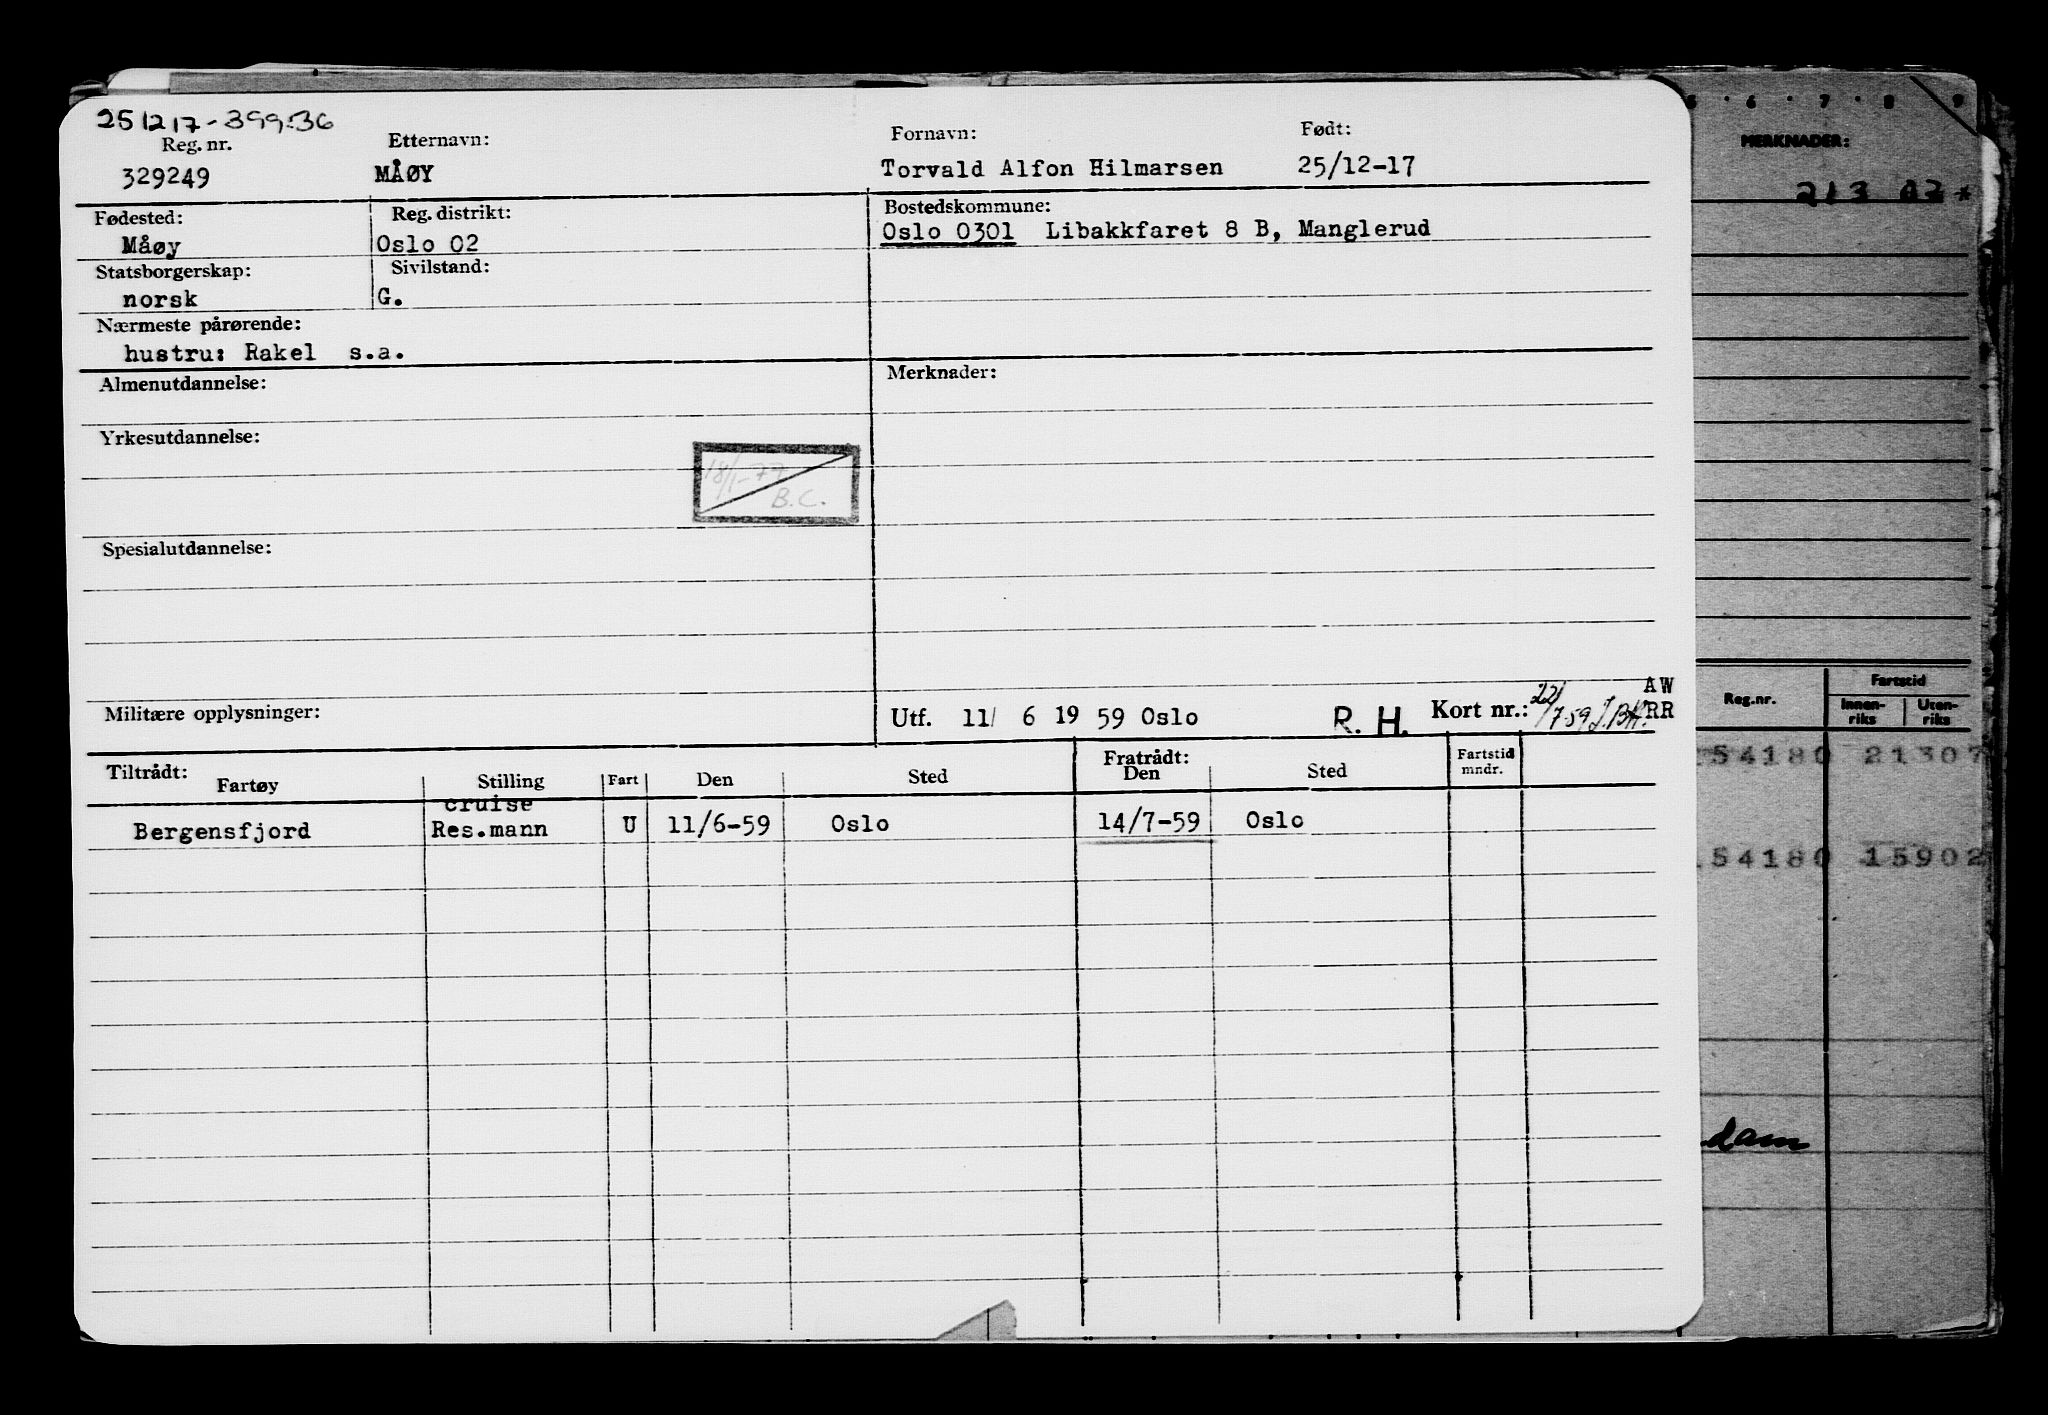 251217-39936
Reg. nr. Etternavn: Fornavn: Født:
329249 MÅØY Torvald Alfon Hilmarsen 25/12-17
Fødested: Reg. distrikt: Bostedskommune:
Måøy Oslo 02 Oslo 0301 Libakkfaret 8 B, Manglerud
Statsborgerskap: Sivilstand:
norsk G.
Nærmeste pårørende:
hustru: Rakel s.a.
Almenutdannelse: Merknader:
Yrkesutdannelse:
18/1-77
B.C.
Spesialutdannelse:
Militære opplysninger: Utf. 11/ 6 19 59 Oslo R. H. Kort nr.: 22/7-59 AW
RR
Tiltrådt: Fratrådt: Fartstid
Fartøy Stilling Fart Den Sted Den Sted mndr.
cruise
Bergensfjord Res.mann U 11/6-59 Oslo 14/7-59 Oslo
5 6 7 8 9
MERKNADER:
213 02*
Reg.nr. Fartstid
Innen-riks Uten-riks
54180 21307
54180 15902
dam